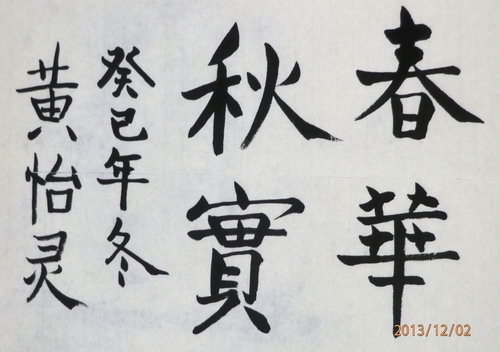 春華
秋實
癸巳年冬
黄怡灵
2013/12/02